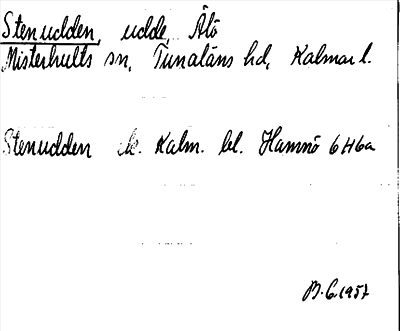 Stenudden, udde, Älö
Misterhults sn, Tunaläns hd, Kalmar l.
Stenudden ek. Kalm. bl. Hamnö 6H6a
B.G. 1957